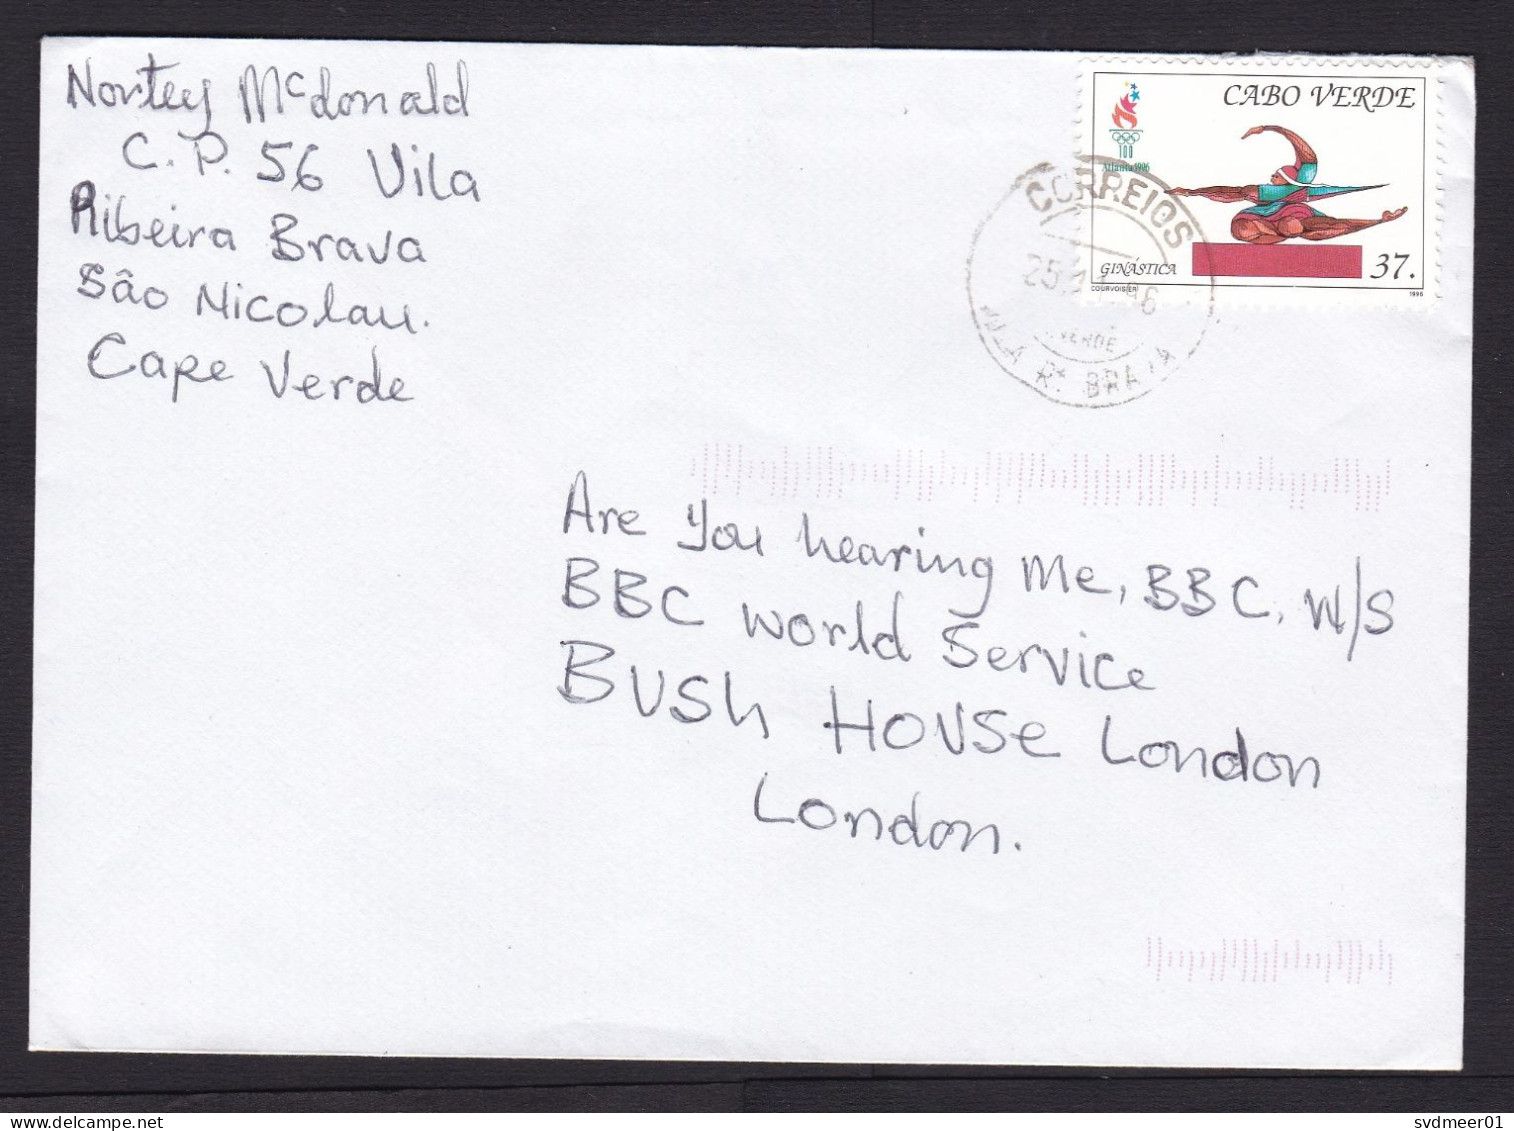 Nortey McDonald
C.P. 56 Vila
Ribeira Brava
São Nicolau.
Cape Verde
CABO VERDE
100
Atlanta 1996
GINÁSTICA
37.
COURVOISIER
1996
CORREIOS
VERDE
VILA Rª BRAVA
Are you hearing me, BBC, W/S
BBC World Service
BUSH HOUSE London
London.
svdmeer01